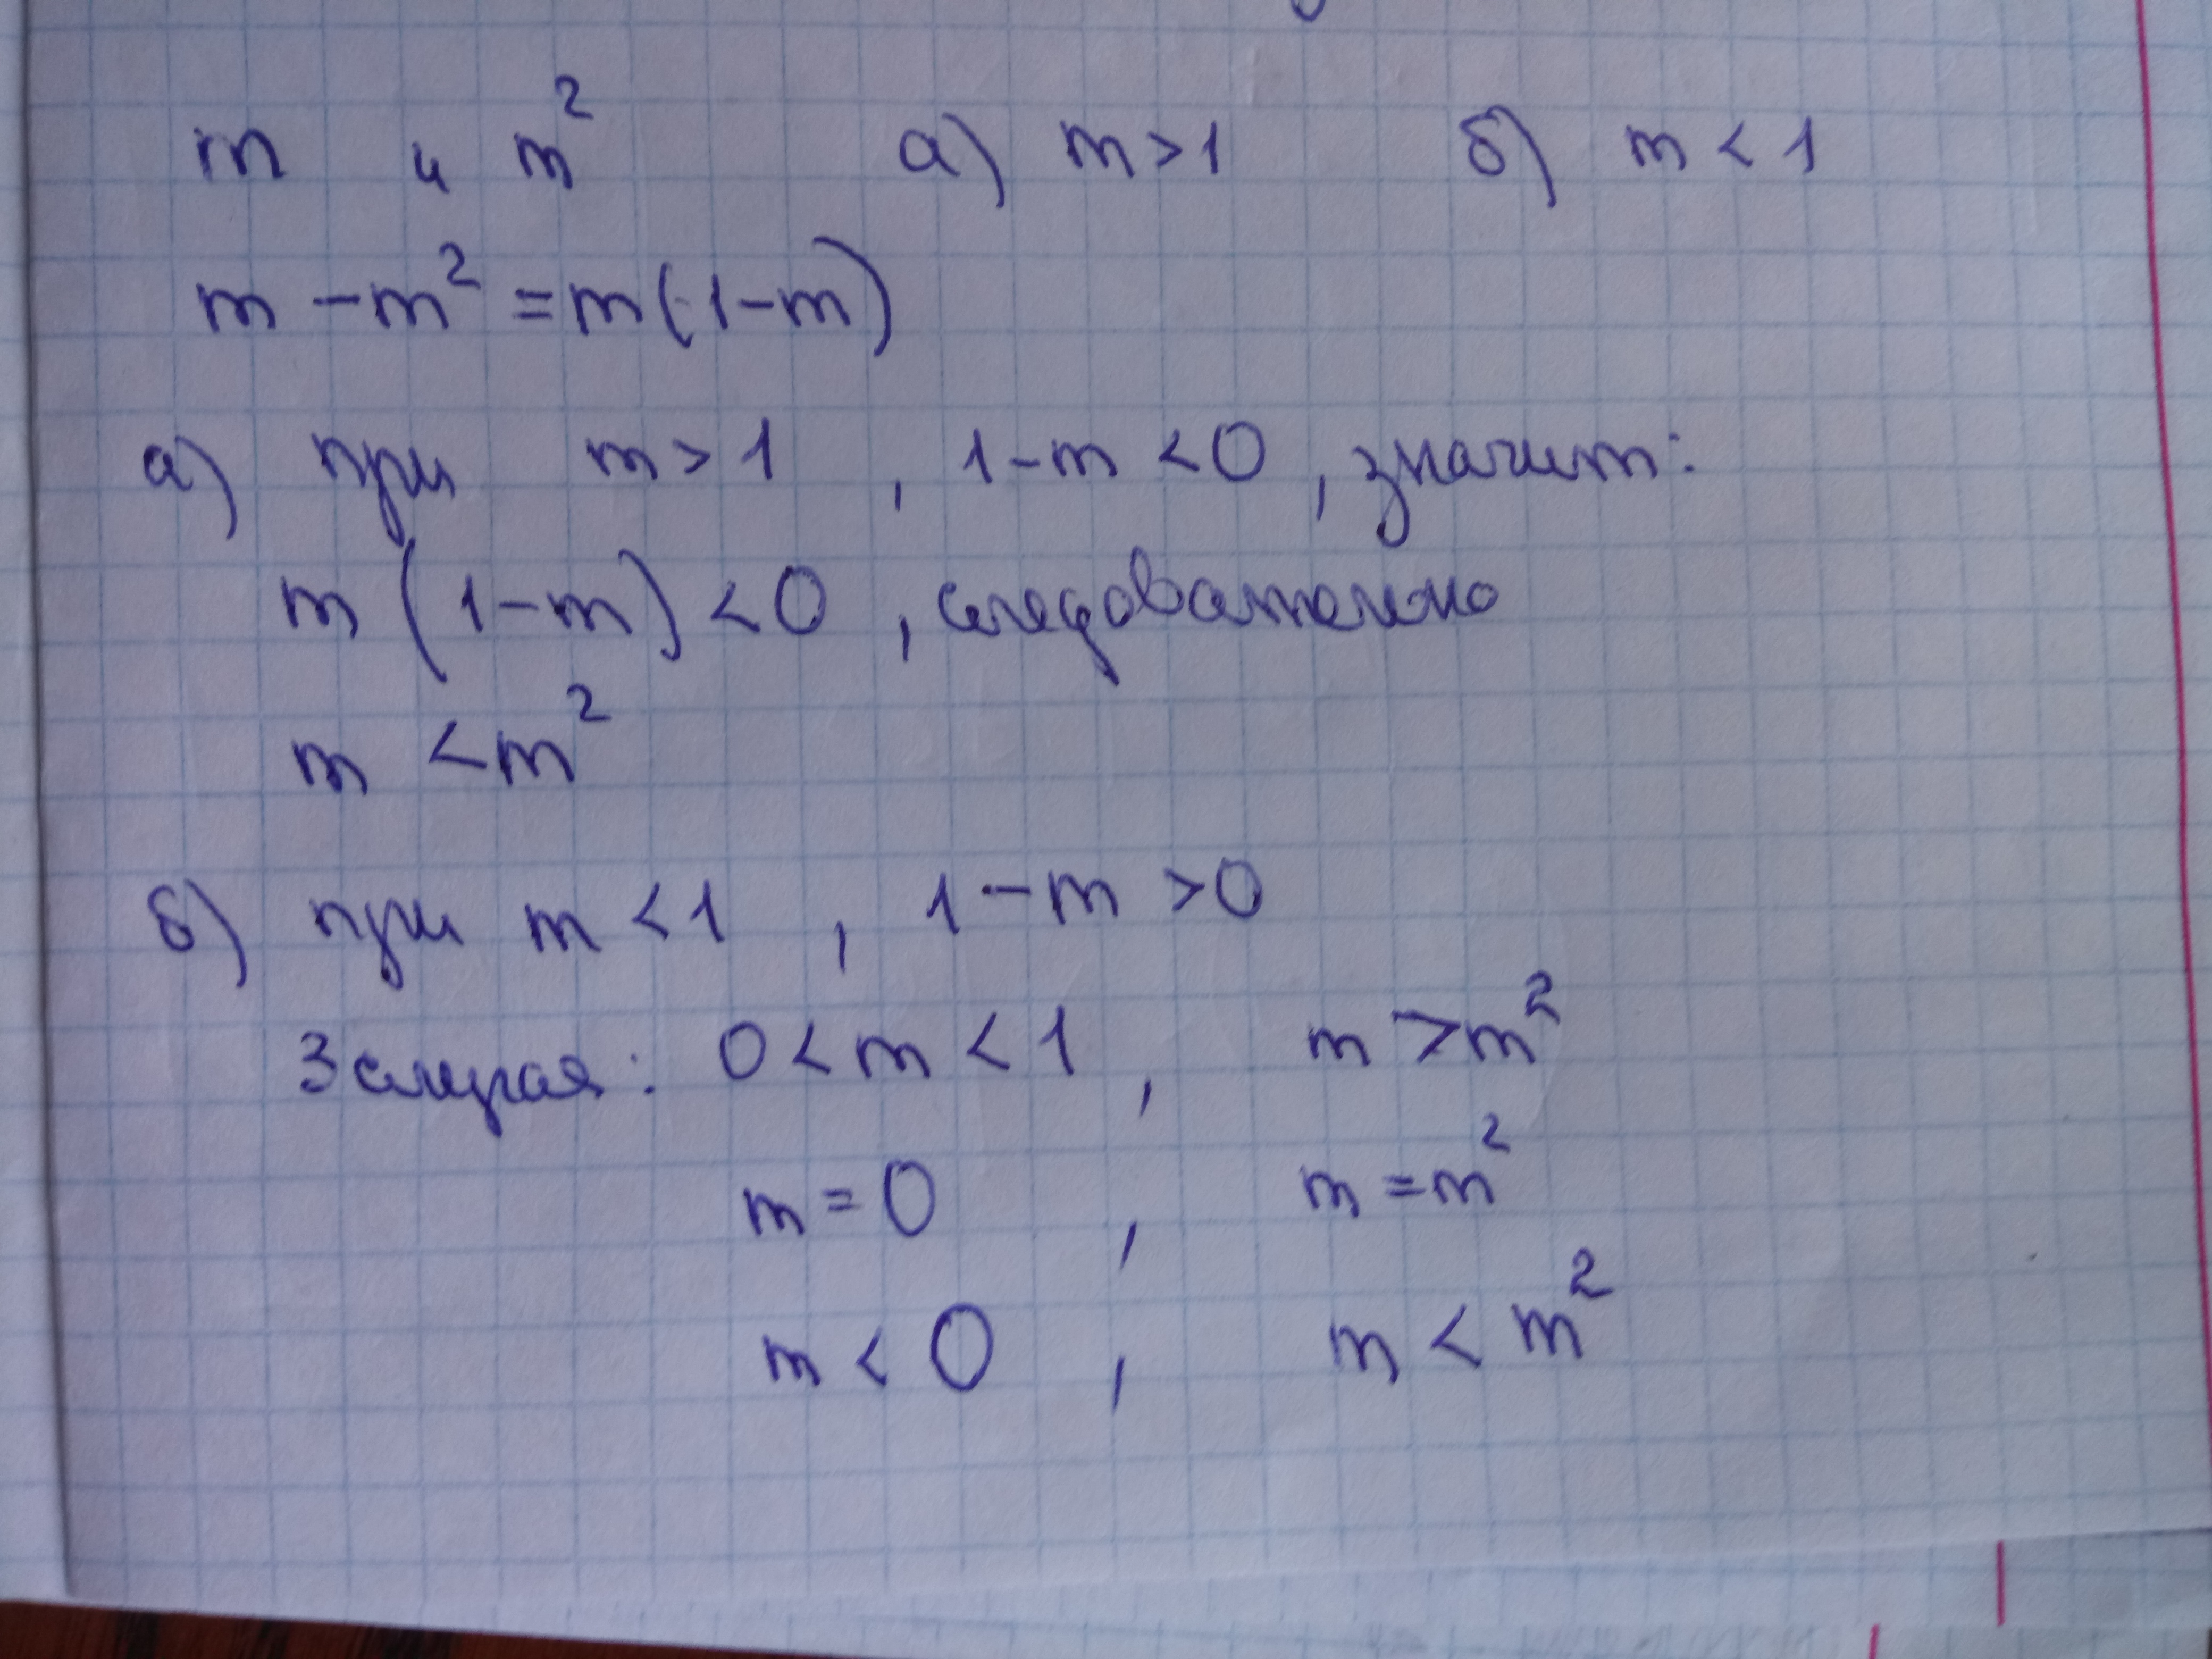 m и m² а) m > 1 б) m < 1
m - m² = m(1-m)
а) при m > 1 , 1-m < 0 , значит:
m (1-m) < 0 , следовательно
m < m²
б) при m < 1 , 1 - m > 0
3 случая: 0 < m < 1 , m > m²
m = 0 , m = m²
m < 0 , m < m²